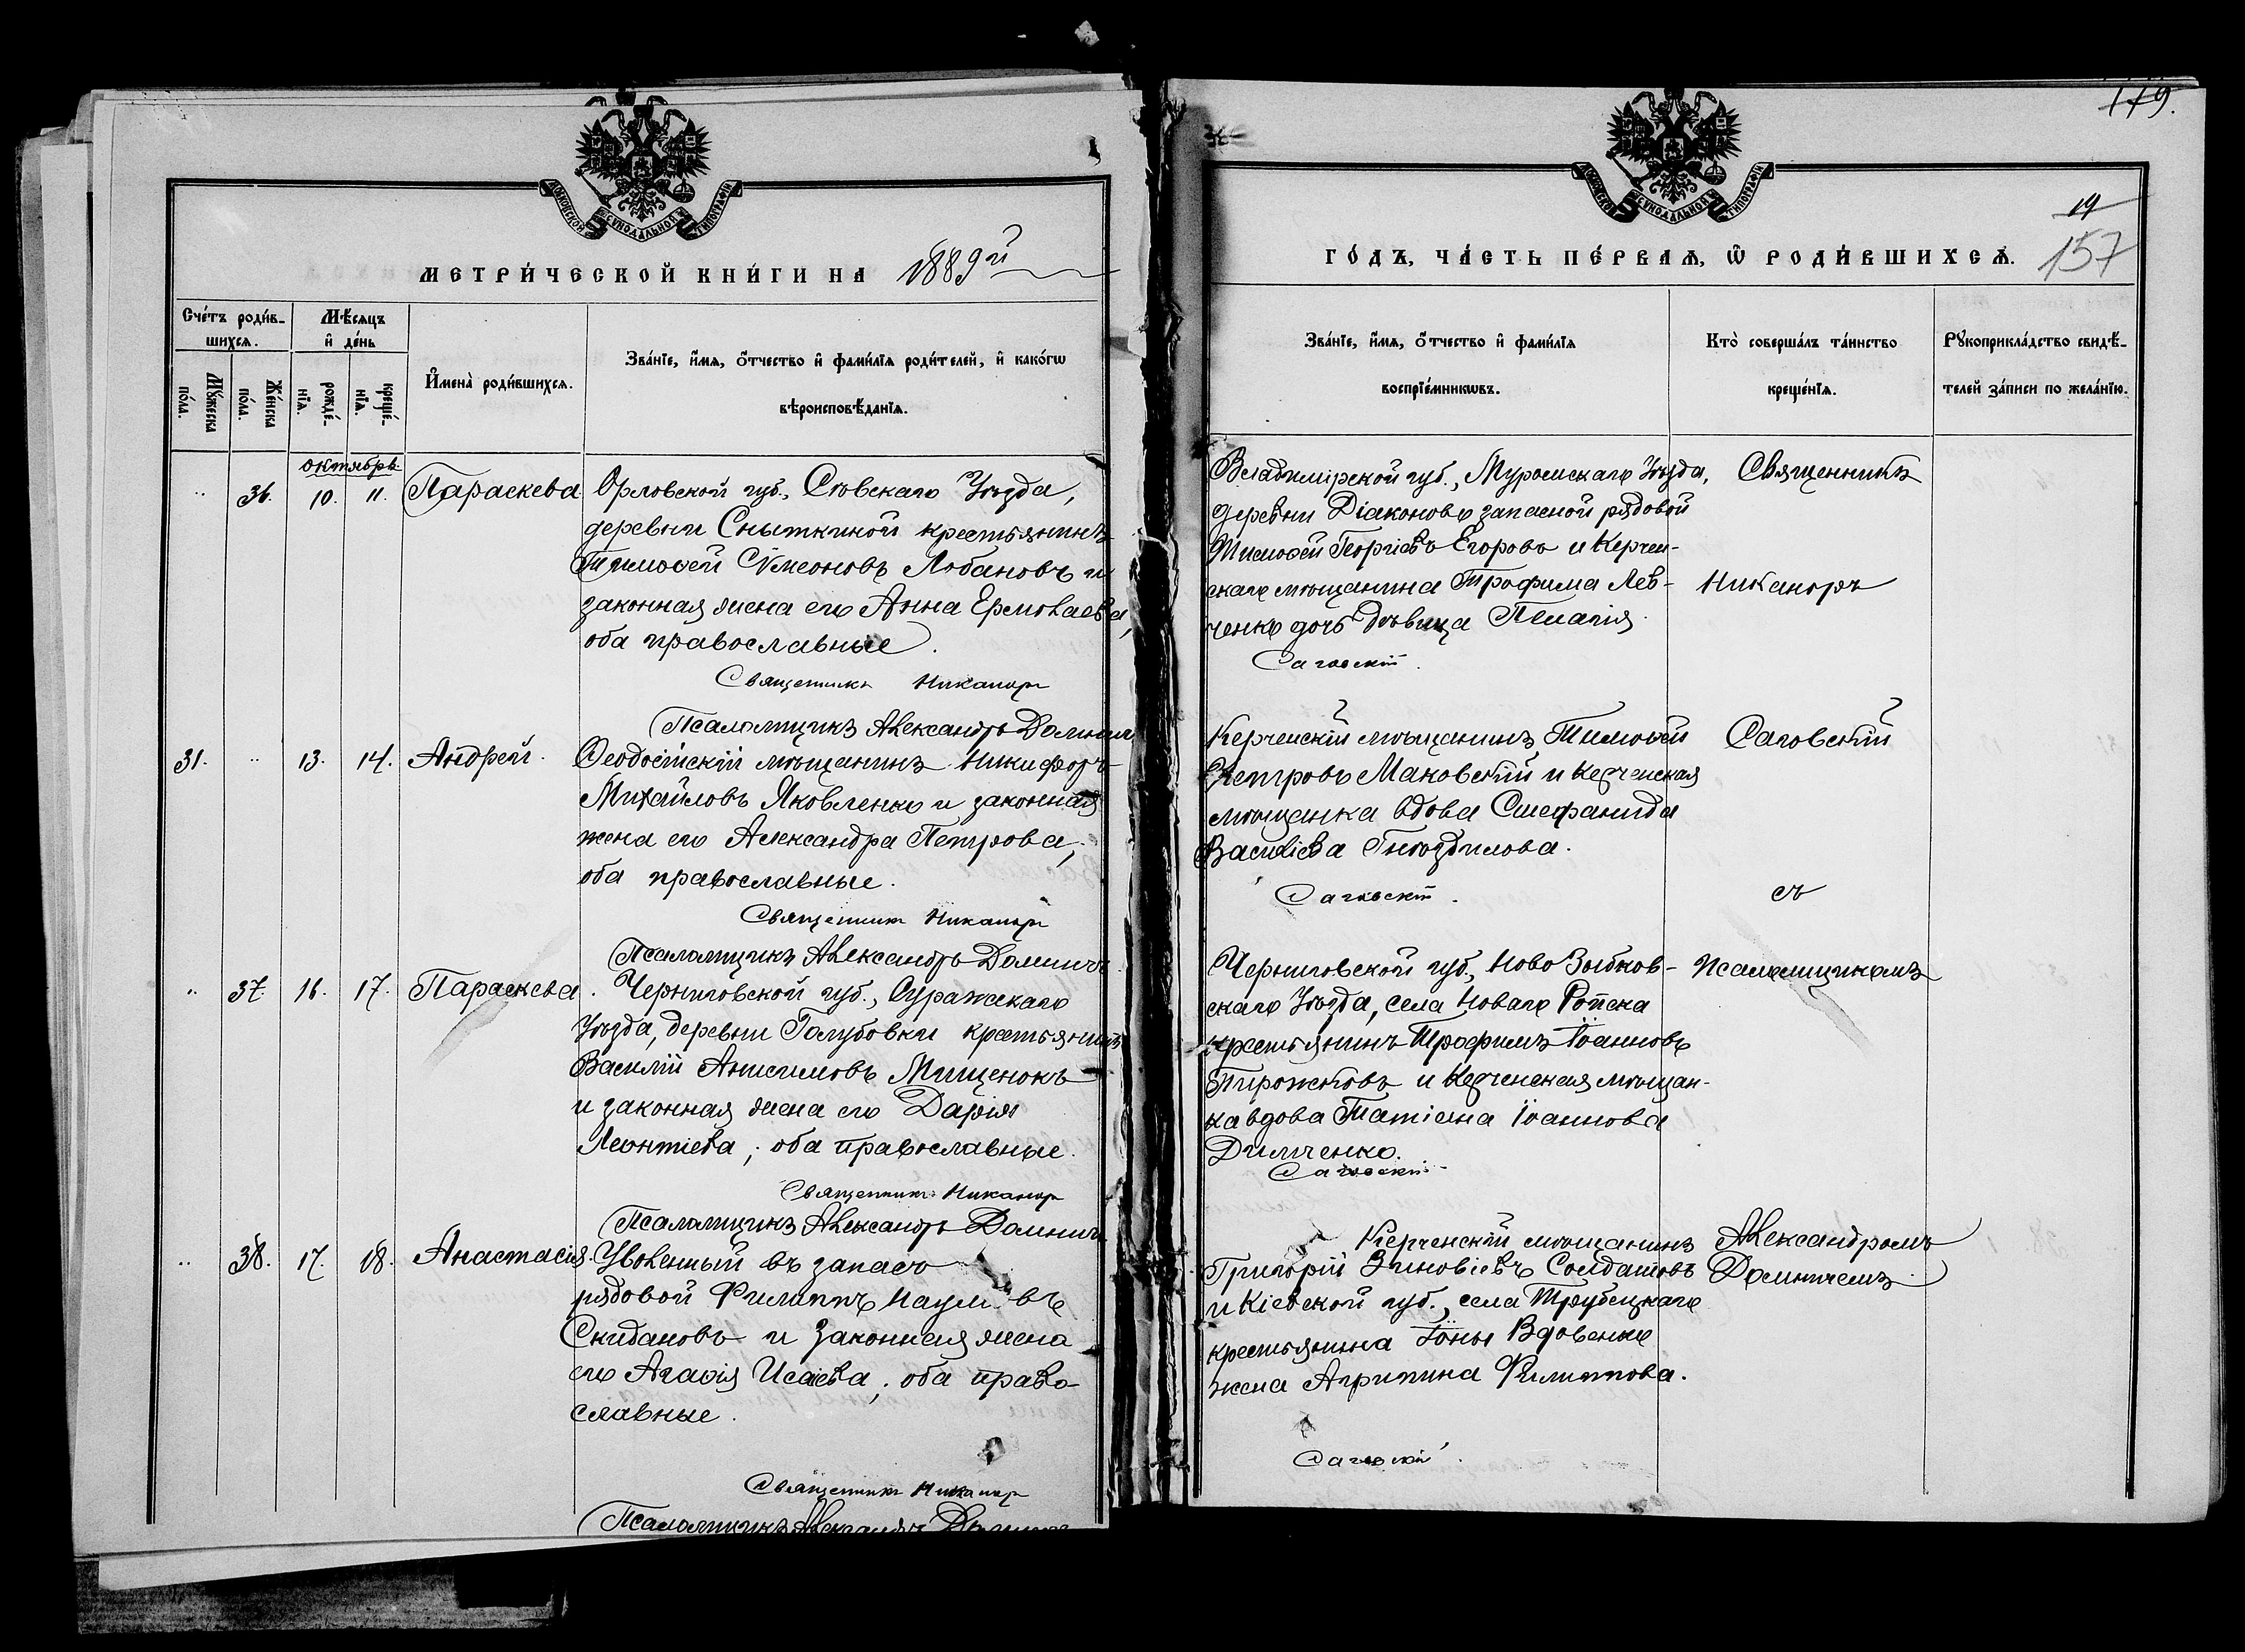 179.
МОСКОВСКОЙ СѴНОДАЛЬНОЙ ТИПОГРАФІИ
МОСКОВСКОЙ СѴНОДАЛЬНОЙ ТИПОГРАФІИ
19
157
МЕТРИ́ЧЕСКОЙ КНИ́ГИ НА 1889й
ГО́ДЪ, ЧА́СТЬ ПЕ́РВАѦ, Ѿ РОДИ́ВШИХСѦ.
Сче́тъ роди́в-
шихсѧ.
Мѣсѧцъ
и҆ де́нь
Мꙋ́жеска
по́ла.
Же́нска
по́ла.
рожде́-
нїѧ.
креще́-
нїѧ.
И҆мена̀ роди́вшихсѧ.
Зва́нїе, и҆́мѧ, ѻ҆́тчество и҆ фами́лїѧ роди́телей, и҆ како́гѡ
вѣроисповѣ́данїѧ.
Зва́нїе, и҆́мѧ, ѻ҆́тчество и҆ фами́лїѧ
воспрїе́мникѡвъ.
Кто̀ соверша́лъ та́инство
креще́нїѧ.
Рꙋкоприкла́дство свидѣ́-
телей за́писи по жела́нїю.
октябрь
" 36. 10. 11. Параскева Орловской губ., Сѣвскаго Уѣзда,
деревни Сныткиной крестьянинъ
Тимоѳей Сѵмеоновъ Лобановъ и
законная жена его Анна Ермолаева,
оба православные.
Священникъ Никаноръ
Псаломщикъ Александръ
Владимірской губ., Муромскаго Уѣзда,
деревни Діаконово запасной рядовой
Тимоѳей Георгіевъ Егоровъ и Керчен-
скаго мѣщанина Трофима Лев-
ченко дочь дѣвица Пелагія.
Саговскій.
Священникъ
Никаноръ
31. " 13. 14. Андрей. Ѳеодосійскій мѣщанинъ Никифоръ
Михайловъ Яковленко и законная
жена его Александра Петрова,
оба православные.
Священникъ Никаноръ
Псаломщикъ Александръ Доминичъ
Керченскій мѣщанинъ Тимоѳей
Петровъ Маковскій и Керченская
мѣщанка вдова Стефанида
Василіева Гнѣздилова.
Саговскій.
Саговскій
съ
" 37. 16. 17. Параскева. Черниговской губ., Суражскаго
Уѣзда, деревни Голубовки крестьянинъ
Василій Анисимовъ Мищенокъ
и законная жена его Дарія
Леонтіева, оба православные.
Священникъ Никаноръ
Псаломщикъ Александръ Доминичъ
Черниговской губ., Ново Зыбков-
скаго Уѣзда, села Новаго Ропска
крестьянинъ Трофимъ Іоанновъ
Пирожковъ и Керченская мѣщан-
ка вдова Татіана Іоаннова
Димченко.
Саговскій
псаломщикомъ
" 38. 17. 18. Анастасія. Уволенный въ запасъ
рядовой Филиппъ Наумовъ
Скидановъ и законная жена
его Агаѳія Исаіева, оба право-
славные.
Священникъ Никаноръ
Псаломщикъ Александръ
Керченскій мѣщанинъ
Григорій Зиновіевъ Солдатовъ
и Кіевской губ., села Трубецкаго
крестьянина Іоны Вдовенко
жена Агрипина Филиппова.
Саговскій.
Александромъ
Доминичемъ.